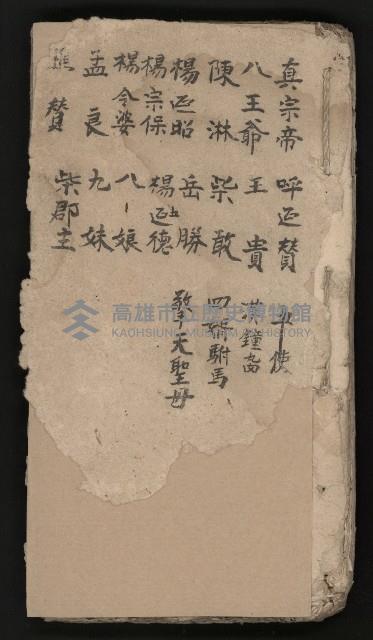 真宗帝 呼延贊 五使
八王爺 王貴 漢鐘离
陳淋 柴敢 四新駙馬
楊延昭 岳勝 敖天聖母
楊宗保 楊五延德
楊令婆 八娘
孟良 九妹
焦贊 柴郡主
高雄市立歷史博物館
KAOHSIUNG MUSEUM OF HISTORY